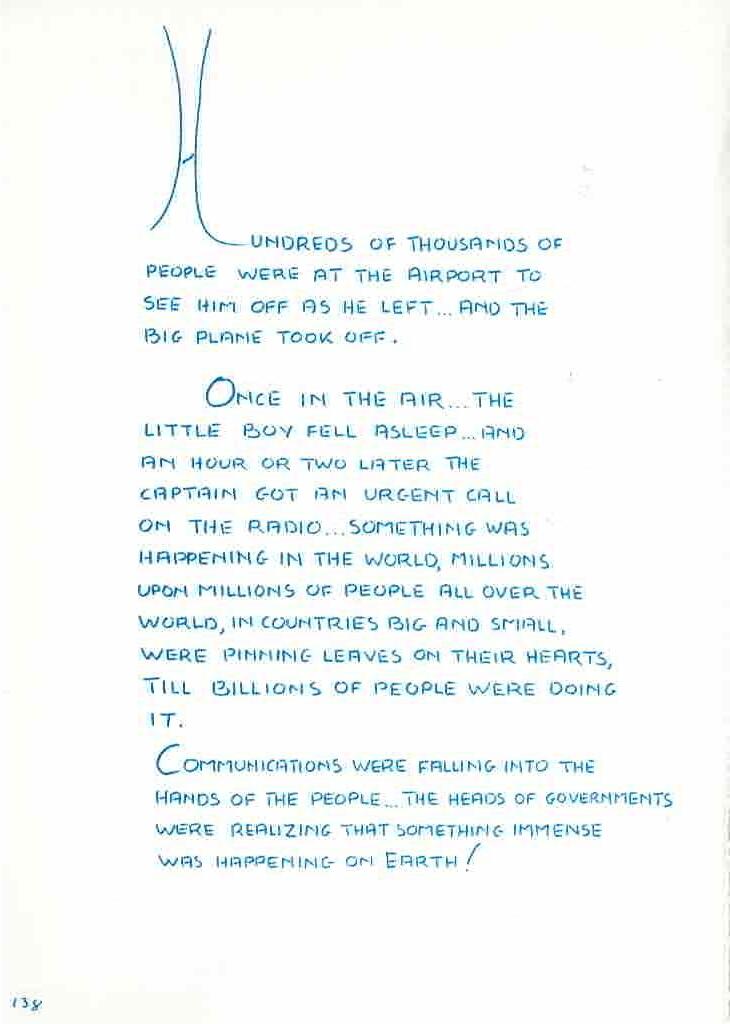 HUNDREDS OF THOUSANDS OF
PEOPLE WERE AT THE AIRPORT TO
SEE HIM OFF AS HE LEFT... AND THE
BIG PLANE TOOK OFF.
ONCE IN THE AIR... THE
LITTLE BOY FELL ASLEEP... AND
AN HOUR OR TWO LATER THE
CAPTAIN GOT AN URGENT CALL
ON THE RADIO... SOMETHING WAS
HAPPENING IN THE WORLD, MILLIONS
UPON MILLIONS OF PEOPLE ALL OVER THE
WORLD, IN COUNTRIES BIG AND SMALL,
WERE PINNING LEAVES ON THEIR HEARTS,
TILL BILLIONS OF PEOPLE WERE DOING
IT.
COMMUNICATIONS WERE FALLING INTO THE
HANDS OF THE PEOPLE... THE HEADS OF GOVERNMENTS
WERE REALIZING THAT SOMETHING IMMENSE
WAS HAPPENING ON EARTH!
138